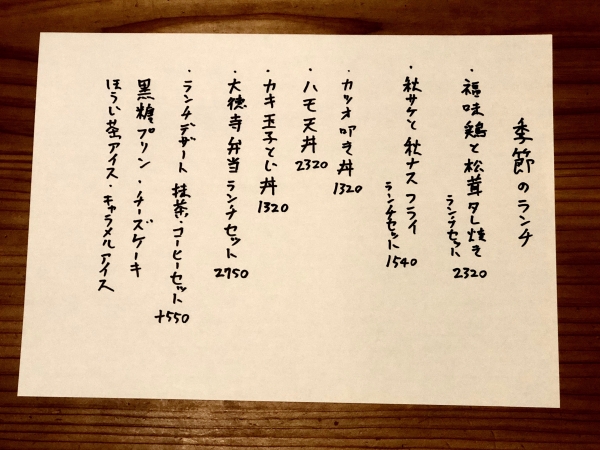 季節のランチ
・福味鶏と松茸タレ焼き
ランチセット
2320
・秋サケと秋ナスフライ
ランチセット
1540
・カツオ叩き丼
1320
・ハモ天丼
2320
・カキ玉子とじ丼
1320
・大徳寺弁当ランチセット
2750
・ランチデザート 抹茶・コーヒーセット
+550
黒糖プリン・チーズケーキ
ほうじ茶アイス・キャラメルアイス